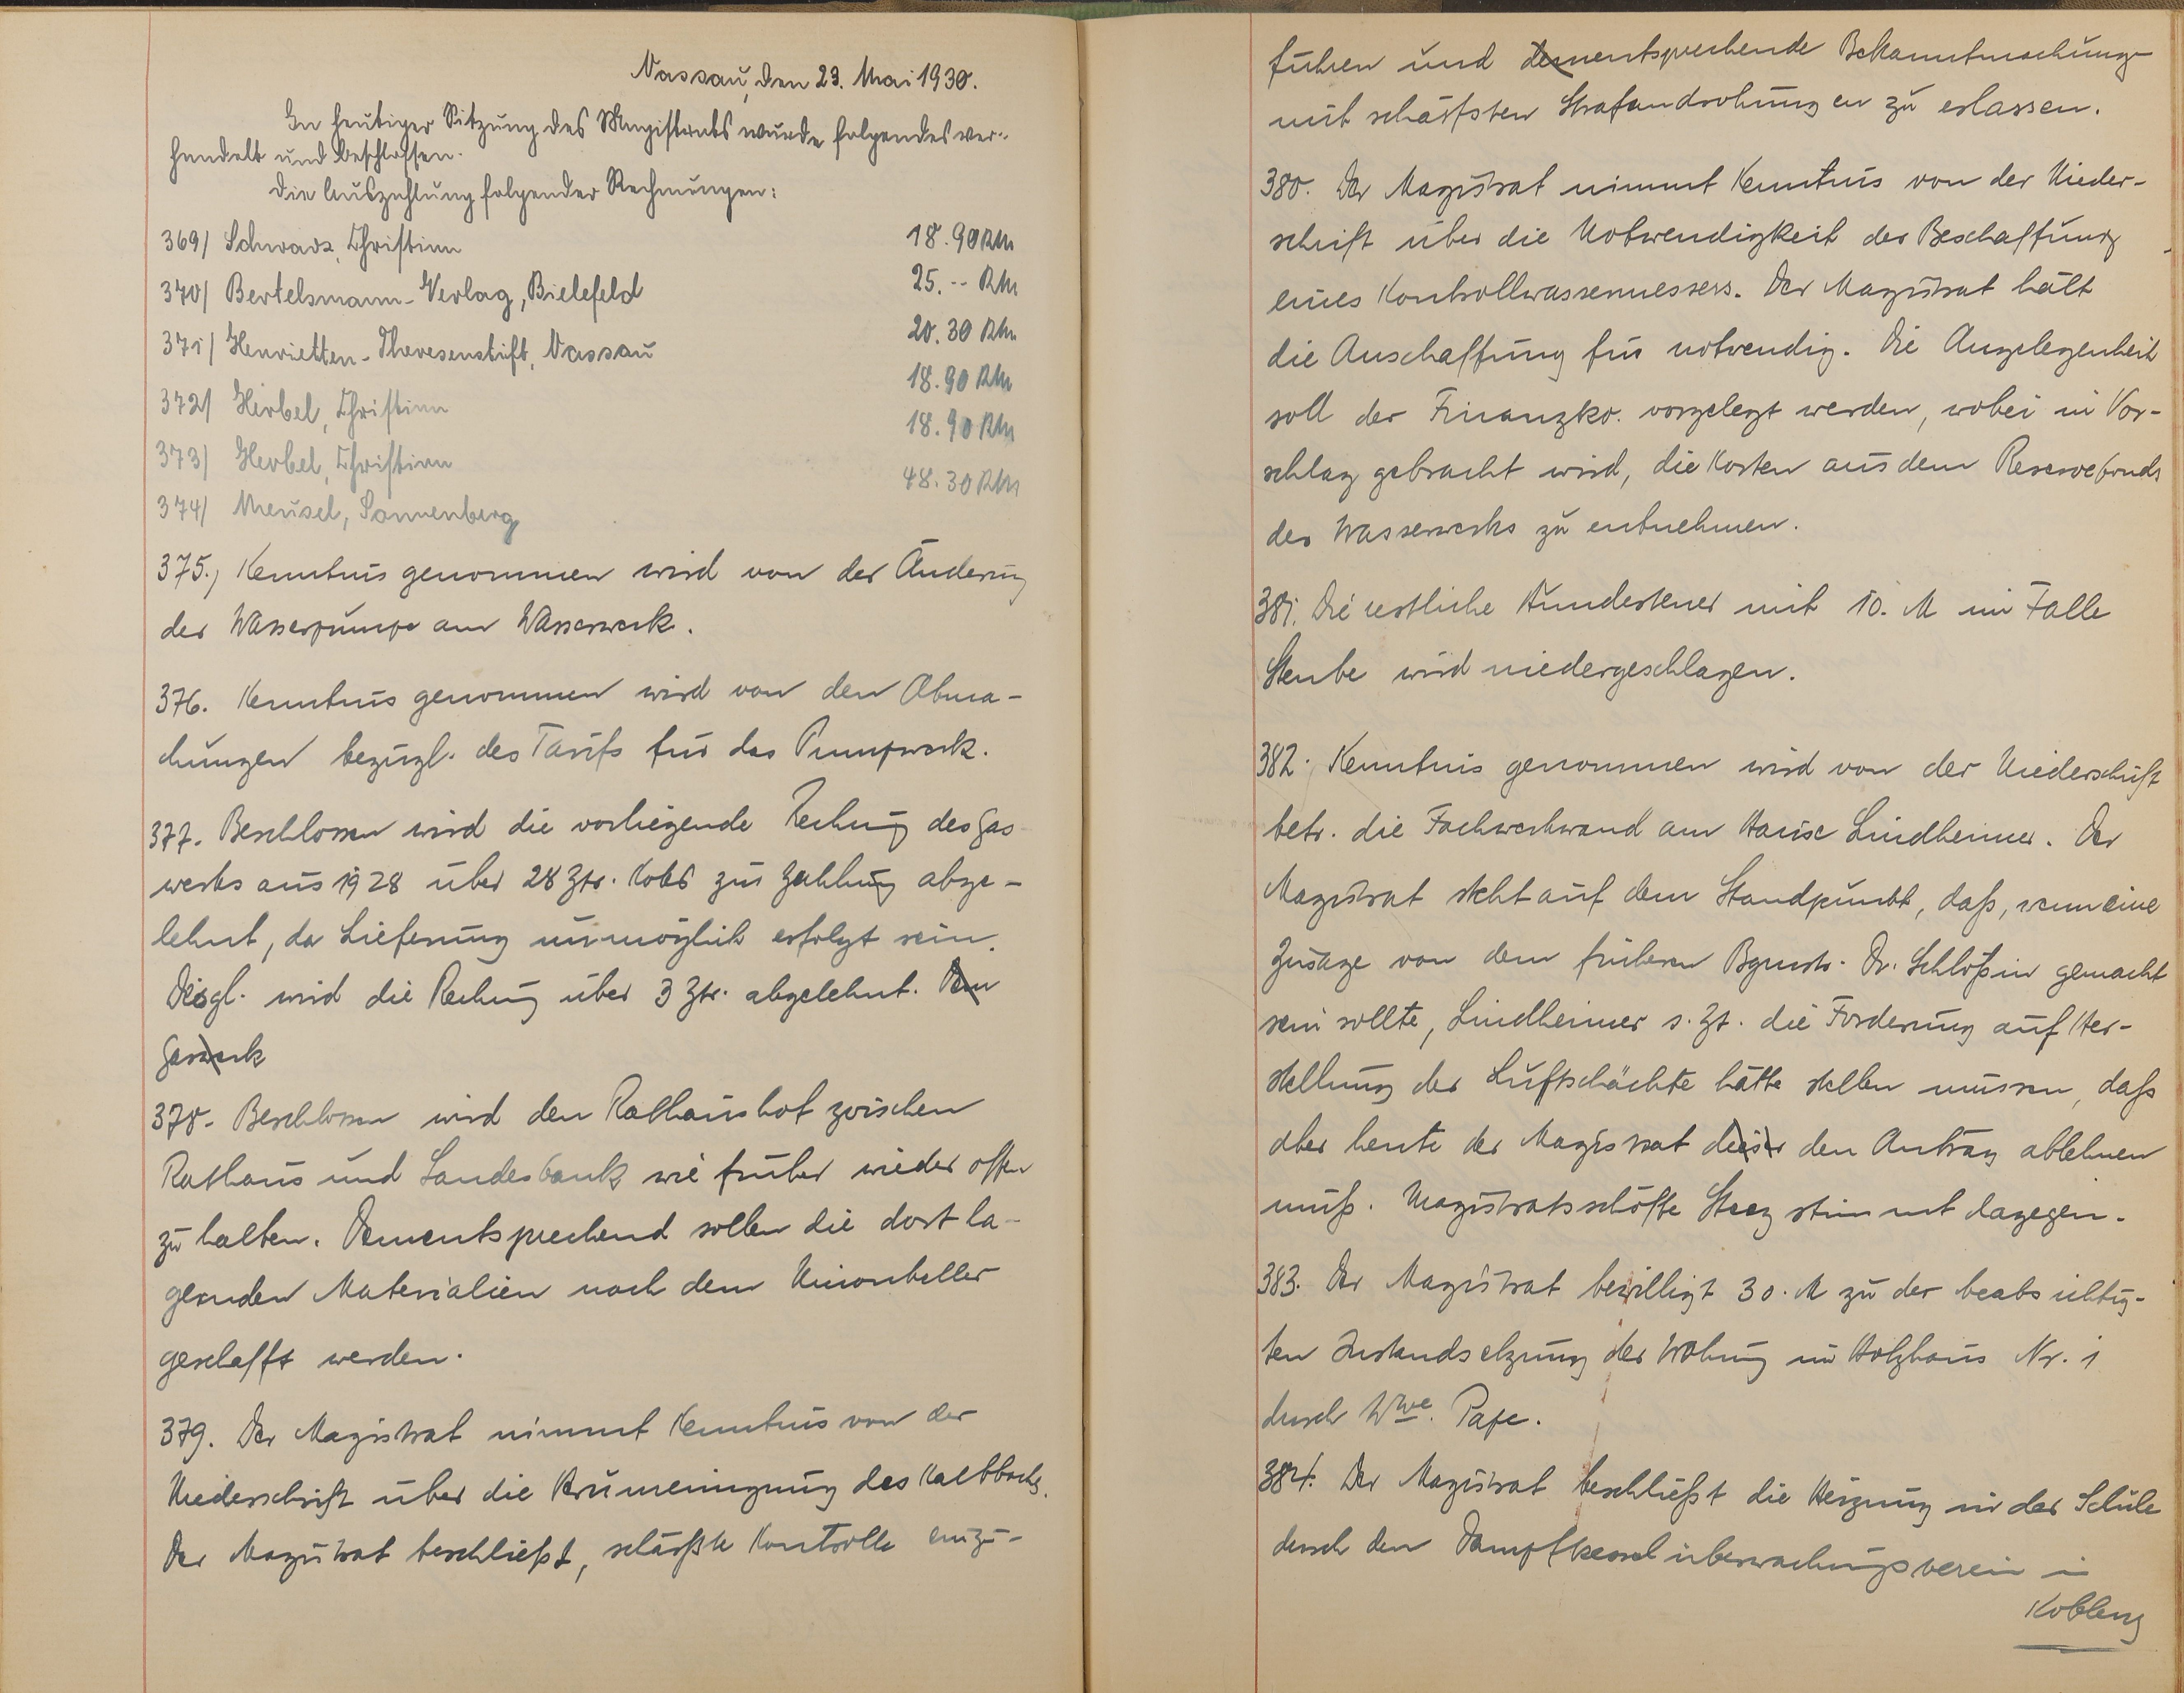 Nassau, den 23. Mai 1930.
In heutiger Sitzung des Magistrats wurde folgendes ver-
handelt und beschlossen.
Die Auszahlung folgender Rechnungen:
369/ Schwarz, Christian 18.90 RM
370/ Bertelsmann-Verlag, Bielefeld 25.-- RM
371/ Henrietten-Theresenstift, Nassau 20.30 RM
372/ Herbel, Christian 18.90 RM
373/ Herbel, Christian 18.90 RM
374/ Meusel, Sonnenberg 48.30 RM
375., Kenntnis genommen wird von der Änderung
der Wasserpumpe am Wasserwerk.
376. Kenntnis genommen wird von den Abma-
chungen bezügl. des Tarifs für das Pumpwerk.
377. Beschlossen wird die vorliegende Rechung des Gas-
werks aus 1928 über 28 Ztr. Koks zur Zahlung abge-
lehnt, da Lieferung unmöglich erfolgt sein.
Desgl. wird die Rechung über 3 Ztr. abgelehnt. Dem
Gaswerk
378. Beschlossen wird den Rathaushof zwischen
Rathaus und Landesbank wie früher wieder offen
zu halten. Dementsprechend sollen die dort la-
gernden Materialien nach dem Unionkeller
geschafft werden.
379. Der Magistrat nimmt Kenntnis von der
Niederschrift über die des Kaltbachs.
Der Magistrat beschließt, schärfste Kontrolle einzu-
führen und dementsprechende Bekanntmachung
mit schärfsten Strafandrohungen zu erlassen.
380. Der Magistrat nimmt Kenntnis von der Nieder-
schrift über die Notwendigkeit der Beschaffung
eines Kontrollwassermessers. Der Magistrat hält
die Anschaffung für notwendig. Die Angelegenheit
soll der Finanzko. vorgelegt werden, wobei in Vor-
schlag gebracht wird, die Kosten aus dem Reservefonds
des Wasserwerks zu entnehmen.
381. Die restliche Hundesteuer mit 10. M im Falle
Steube wird niedergeschlagen.
382. Kenntnis genommen wird von der Niederschrift
betr. die Fachwerkwand am Hause Lindheimer. Der
Magistrat steht auf dem Standpunkt, daß, wenn eine
Zusage von dem früheren Bgmstr. Dr. Schlößin gemacht
sein sollte, Lindheimer s. Zt. die Forderung auf Her-
stellung der Luftschächte hätte stellen müssen, daß
aber heute der Magistrat dieser den Antrag ablehnen
muß. Magistratsschöffe stimmt dagegen.
383. Der Magistrat bewilligt 30. M zu der beabsichtig-
ten Instandsetzung der Wohung im Holzhaus Nr. 1
durch Wwe. Pape.
384. Der Magistrat beschließt die Heizung in der Schule
durch den Dampfkesselüberwachungsverein in
Koblenz